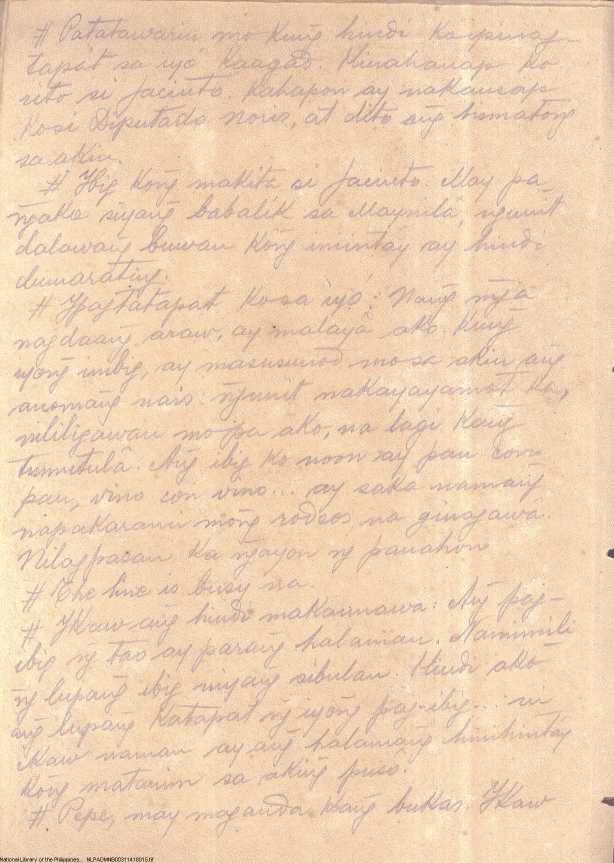 # Patatawarin mo kung hindi ka ipinag-
tapát sa iyó kaagad. Hinahanap ko
rito si Jacinto. Kahapon ay nakausap
ko si Diputado Noriz, at dito ang humatong
sa akin.
# Ibig kong makita si Jacinto. May pa-
ngako siyang babalík sa Maynilà, nguni't
dalawang buwan kong inintáy ay hindi
dumarating.
# Ipagtatapat ko sa iyó: Nang mga
nagdaang araw, ay malayà ako. Kung
iyong inibig, ay masusunod mo sa akin ang
anomang nais: nguni't nakayayamot ka,
nililigawan mo pa ako, na lagi kang
tumutulâ. Ang ibig ko noon ay pan con
pan, vino con vino... ay saka namang
napakarami mong rodeos na ginagawâ.
Nilagpasan ka ngayon ng panahon
# The line is busy na.
# Ikaw ang hindi makaunawa: Ang pag-
ibig ng tao ay parang halaman. Namimili
ng lupang ibig niyang sibulan. Hindi akó
ang lupang katapat ng iyong pag-ibig... ni
ikaw naman ay ang halamang hinihintáy
kong matanim sa aking puso.
# Pepe, may maganda kang bukas. Ikaw
National Library of the Philippines... NLPADMNB00311418015.tif